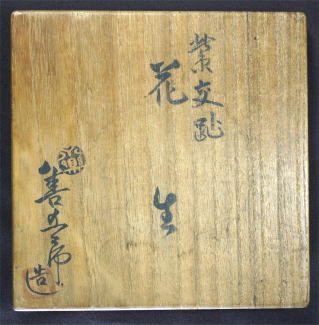 紫交趾
花生
善五郎
造